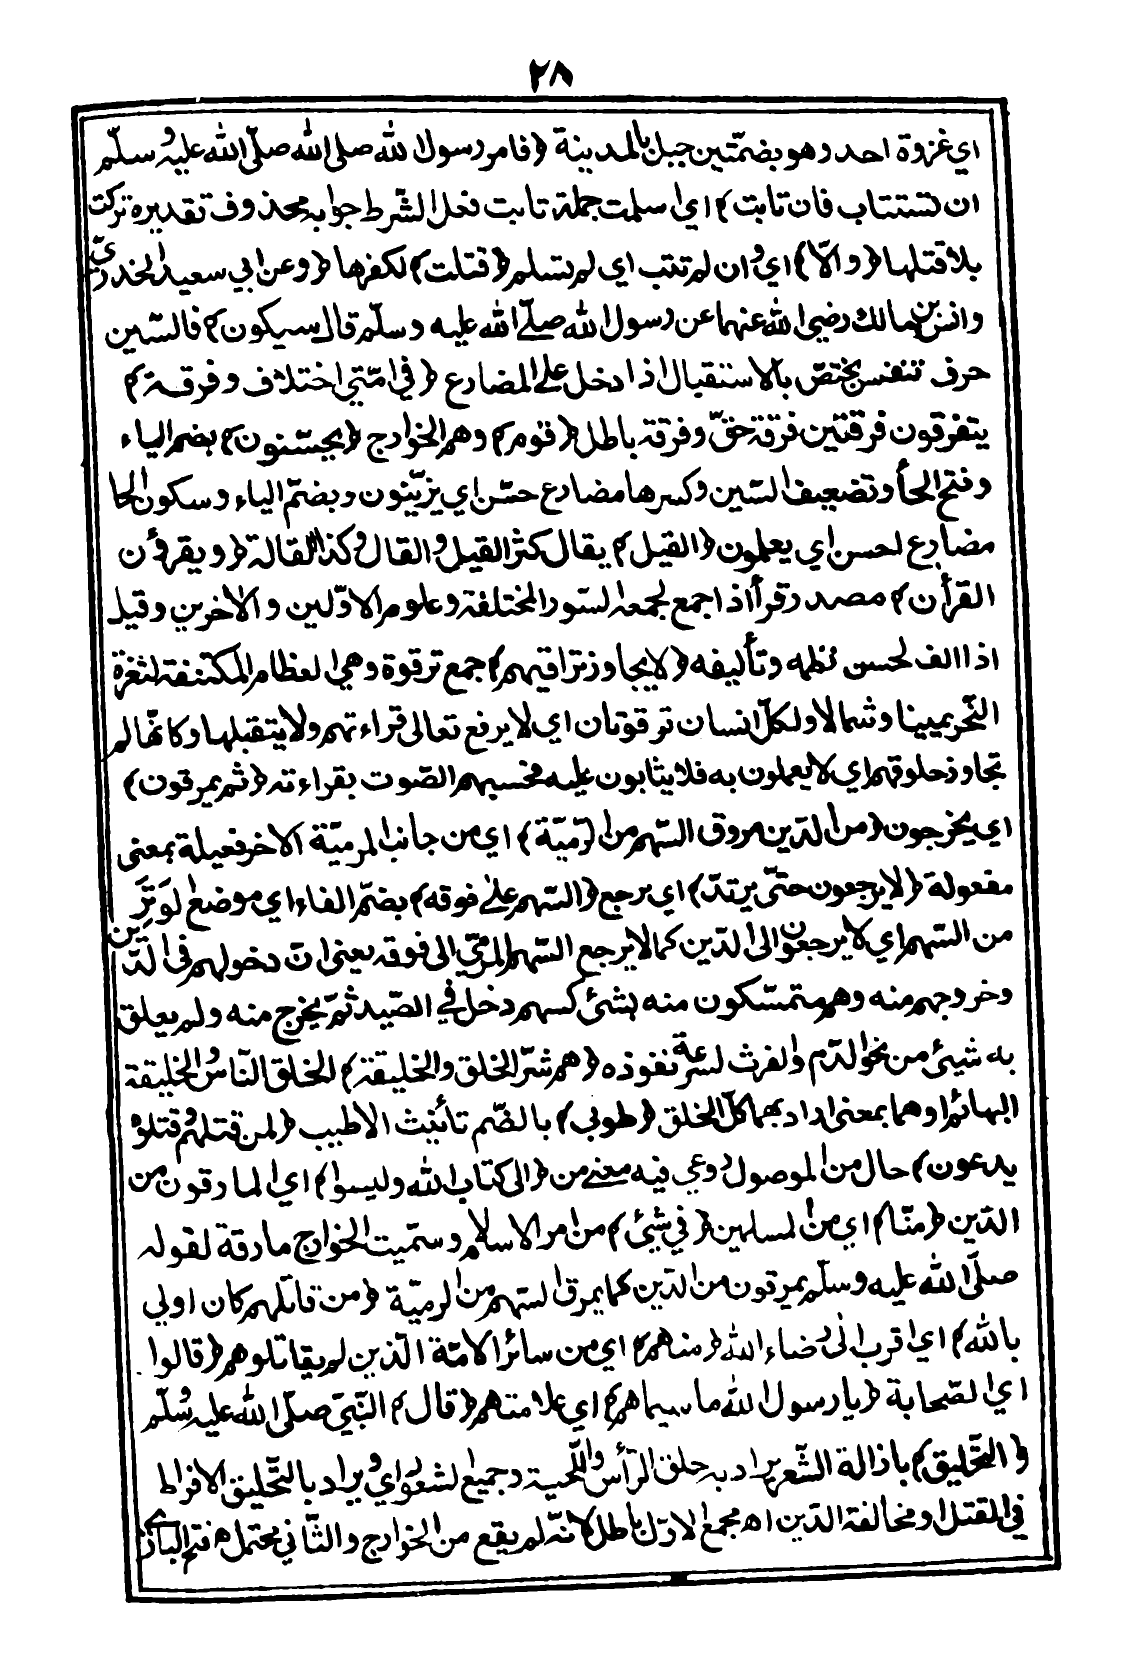 ٢٨
اي غزوة احد وهو بضمّتين جبل بالمدينة ﴿فامر رسول الله صلى الله صلّى الله عليه وسلّم
ان تستتاب فان تابت﴾ اي اسلمت جملة تابت فعل الشّرط جوابه محذوف تقديره تركت
بلا قتلها ﴿والّا﴾ اي وان لم تتب اي لم تسلم ﴿قتلت﴾ لكفرها ﴿وعن ابي سعيد الخدريّ
وانس بن مالك رضي الله عنهما عن رسول الله صلّى الله عليه وسلّم قال سيكون﴾ فالسّين
حرف تنفس يختصّ بالاستقبال اذا دخل على المضارع ﴿في امّتي اختلاف وفرقة﴾
يتفرقون فرقتين فرقة حقّ وفرقة باطل ﴿قوم﴾ وهم الخوارج ﴿يحسّنون﴾ بضم الياء
وفتح الحأ وتضعيف السّين وكسرها مضارع حسّن اي يزيّنون وبضمّ الياء وسكون الحا
مضارع لحسن اي يعملون ﴿القيل﴾ يقال كثر القيل والقال وكذا القالة ﴿ويقرؤن
القرأن﴾ مصدر قرأ اذا جمع لجمعه السّور المختلفة وعلوم الاوّلين والاخرين وقيل
اذا الف لحسن نظمه وتأليفه ﴿لايجاوز تراقيهم﴾ جمع ترقوة وهي العظام المكتنفة لثغرة
النّحر يمينا وشمالا ولكلّ انسان ترقوتان اي لا يرفع تعالى قراءتهم ولا يتقبلها وكانّها لم
تجاوز حلوقهم اي لا يعملون به فلا يثابون عليه فحسبهم الصّوت بقراءته ﴿ثم يمرقون﴾
اي يخرجون ﴿من الدّين مروق السّهم من الرّميّة﴾ اي من جانب المرميّة الاخر فعيلة بمعنى
مفعولة ﴿لا يرجعون حتّى يرتدّ﴾ اي يرجع ﴿السّهم على فوقه﴾ بضمّ الفاء اي موضع الوَتَرِ
من السّهم اي لا يرجعون الى الدّين كما لا يرجع السّهم المرميّ الى فوقه يعني انّ دخولهم في الدّين
وخروجهم منه وهم متمسّكون منه بشئ كسهم دخل في الصّيد ثمّ يخرج منه ولم يعلق
به شيئ من نحو الدّم والفرث لسرعة نفوذه ﴿هم شرّ الخلق والخليقة﴾ الخلق النّاس والخليقة
البهائم او هما بمعنى اراد بهما كلّ الخلق ﴿طوبى﴾ بالضّم تأنيث الاطيب ﴿لمن قتلهم وقتلوه
يدعون﴾ حال من الموصول روعي فيه معنى من ﴿الى كتاب الله وليسوا﴾ اي المارقون من
الدّين ﴿منّا﴾ اي من المسلمين ﴿في شيئ﴾ من امر الاسلام وسمّيت الخوارج مارقة لقوله
صلّى الله عليه وسلّم يمرقون من الدّين كما يمرق السّهم من الرميّة ﴿من قاتلهم كان اولى
بالله﴾ اي اقرب الى رضاء الله ﴿منهم﴾ اي من سائر الامّة الّذين لم يقاتلوهم ﴿قالوا
اي الصّحابة ﴿يا رسول الله ما سيماهم﴾ اي علامتهم ﴿قال﴾ النّبيّ صلّى الله عليه وسلّم
﴿التّحليق﴾ باذالة الشّعر يراد به حلق الرّأس واللّحية وجميع الشعور اي ويراد بالتّحليق الافراط
في القتل او مخالفة الدّين اه مجمع الاوّل باطل لانّه لم يقع من الخوارج والثّاني محتمل اه فتح الباري